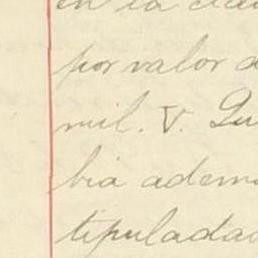 en la cla
por valor d
mil. V. Qu
bia adema
tipuladas